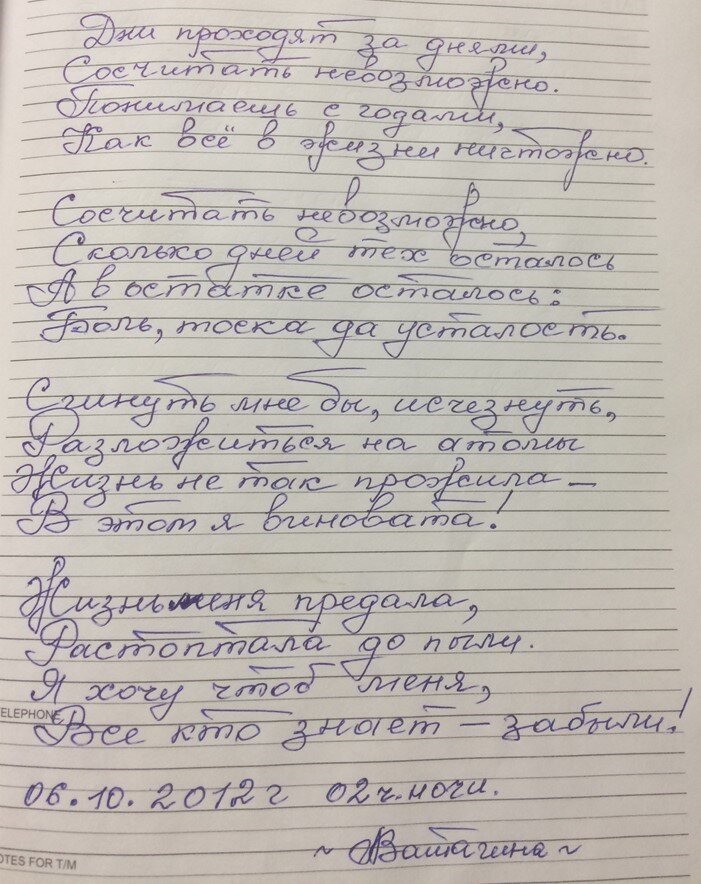 Дни проходят за днями,
Сосчитать невозможно.
Понимаешь с годами,
Как всё в жизни ничтожно.
Сосчитать невозможно,
Сколько дней тех осталось
А в остатке осталось:
Боль, тоска да усталость.
Сгинуть мне бы, исчезнуть,
Разложиться на атомы
Жизнь не так прожила –
В этом я виновата!
Жизнь меня предала,
Растоптала до пыли.
Я хочу чтоб меня,
ELEPHONE
Все кто знает – забыли!
06.10.2012 г 02 ч. ночи.
~ Ватагина ~
OTES FOR T/M